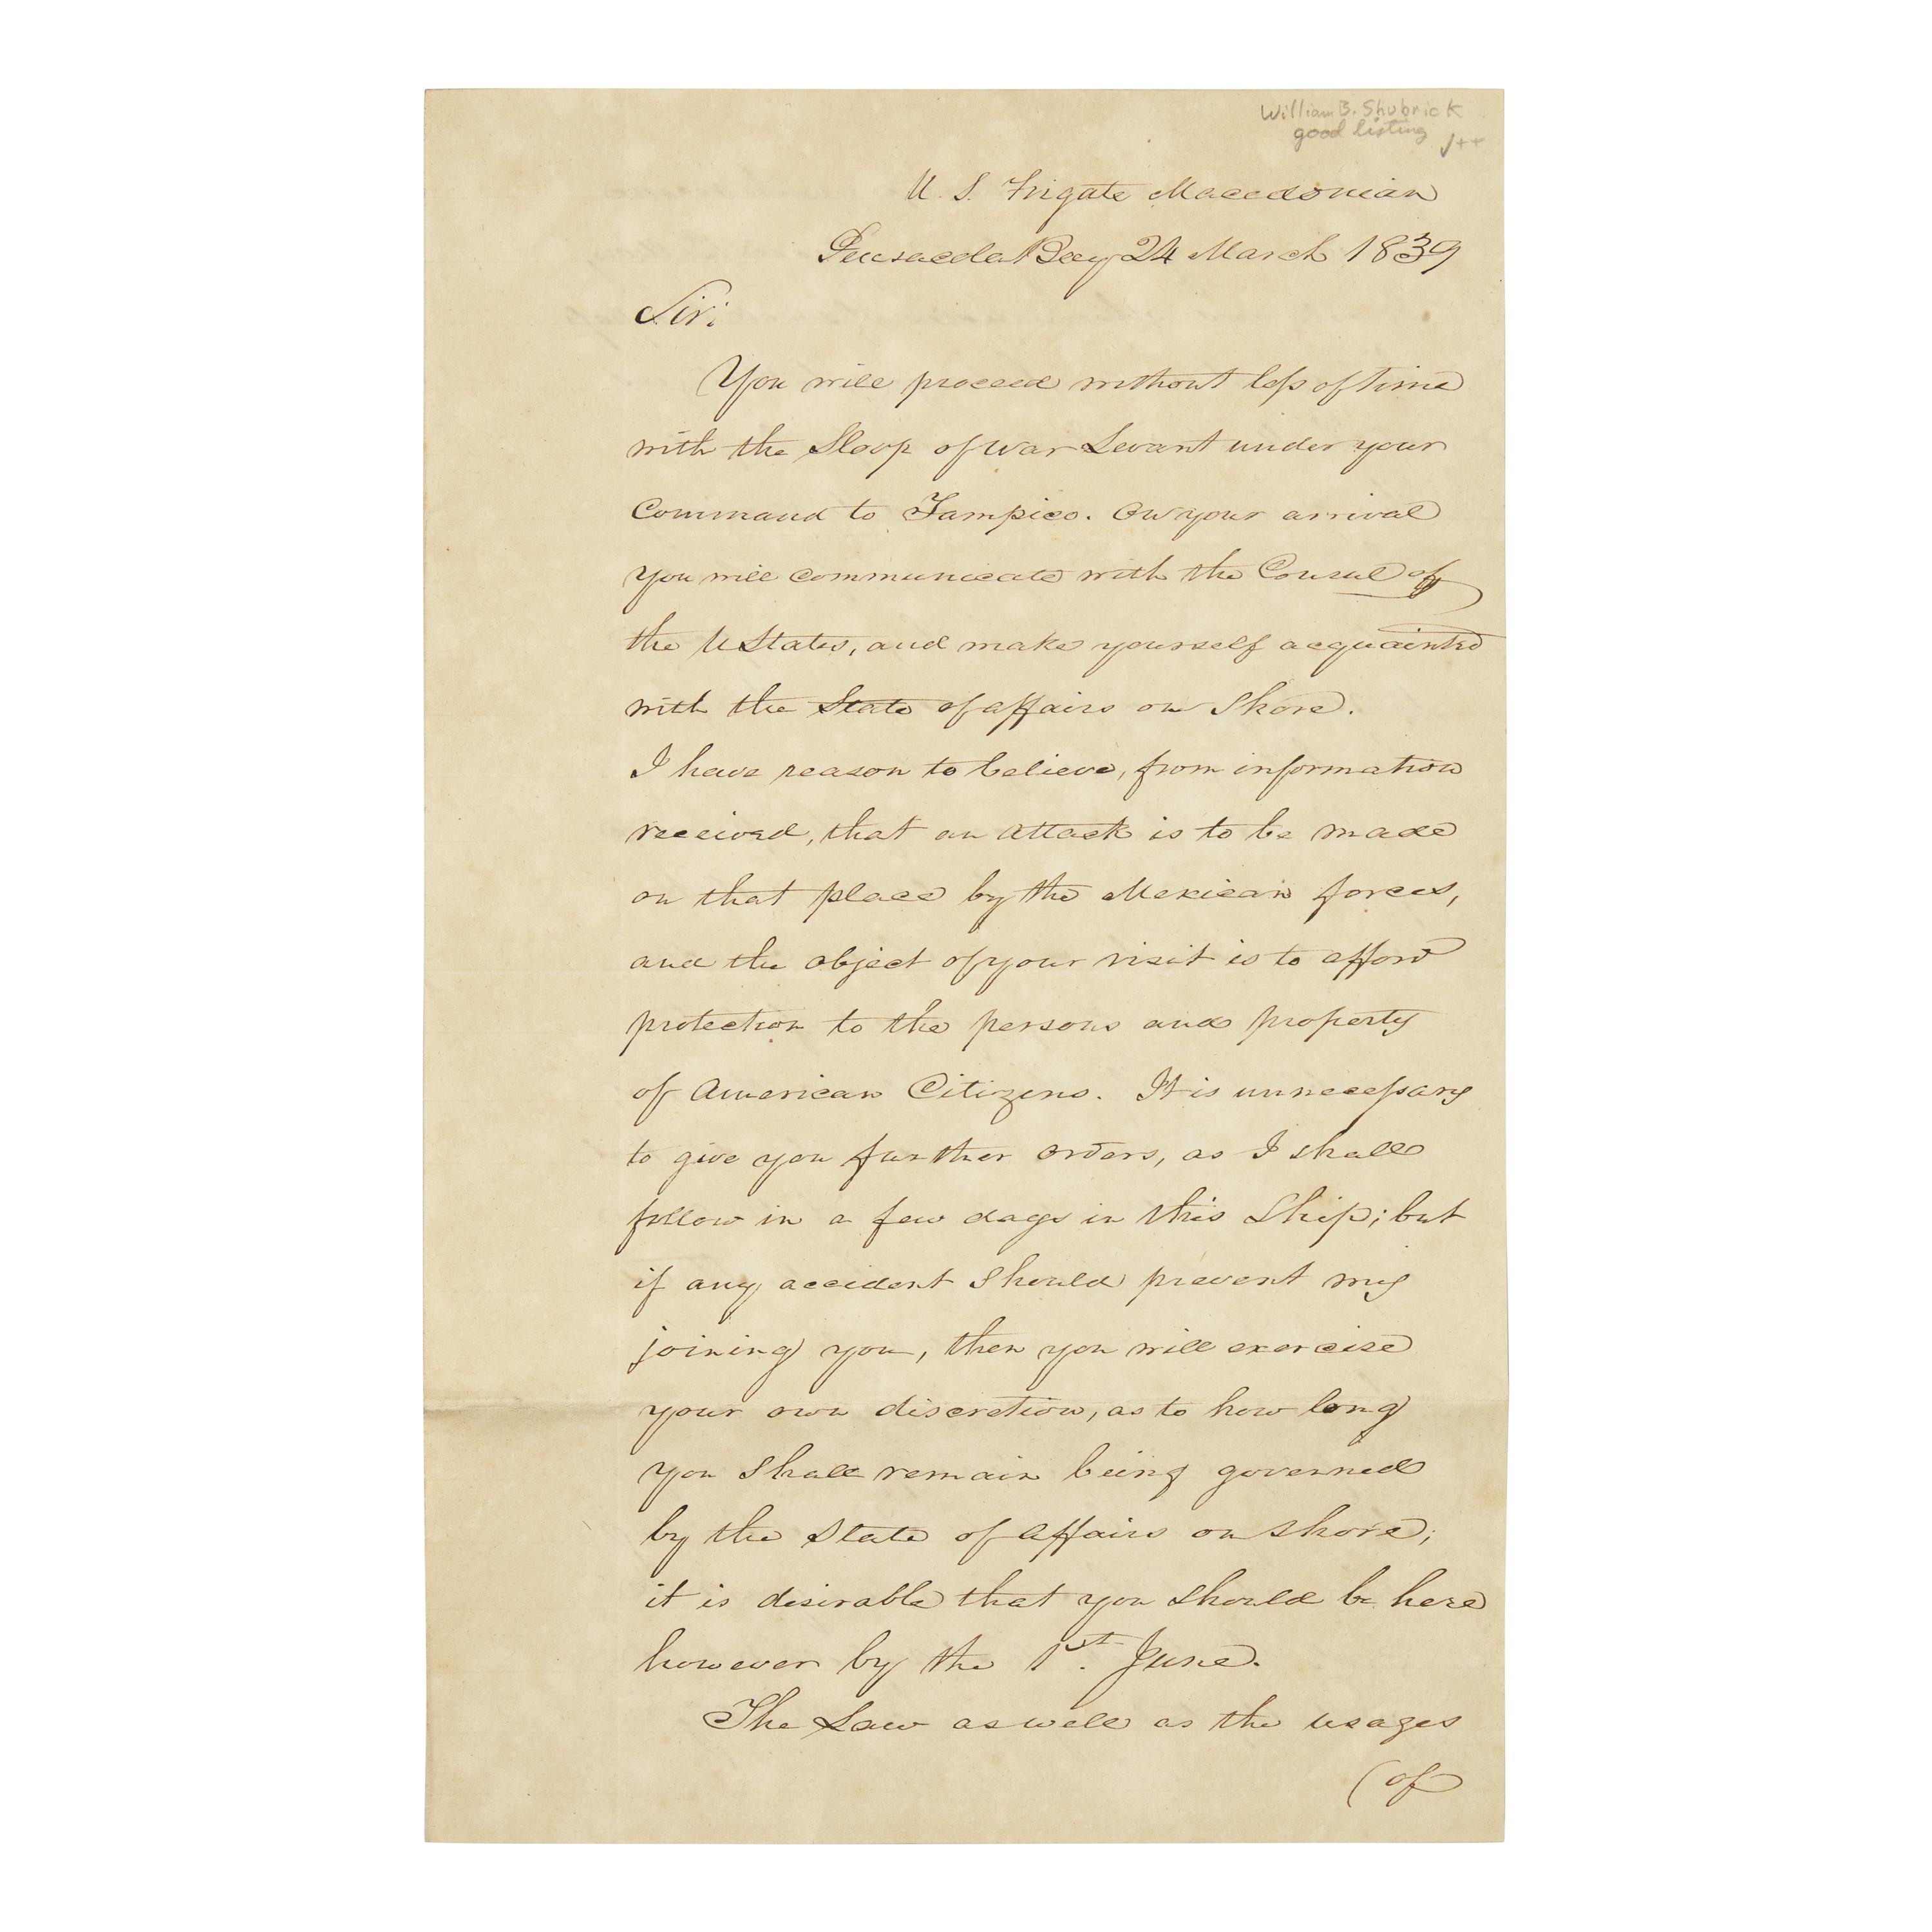 William B. Shubrick
good listing
√++
U. S. Frigate Macedonian
Pensacola Bay 24 March 1839
Sir:
You will proceed without loss of time
with the Sloop of War Levant under your
Command to Tampico. On your arrival
you will communicate with the Consul of
the UStates, and make yourself acquainted
with the State of affairs on Shore.
I have reason to believe, from information
received, that an attack is to be made
on that place by the Mexican forces,
and the object of your visit is to afford
protection to the persons and property
of American Citizens. It is unnecessary
to give you further orders, as I shall
follow in a few days in this Ship; but
if any accident Should prevent my
joining you, then you will exercise
your own discretion, as to how long
you Shall remain being governed
by the State of affairs on shore;
it is desirable that you Should be here
however by the 1st. June.
The Law as well as the usages
(of